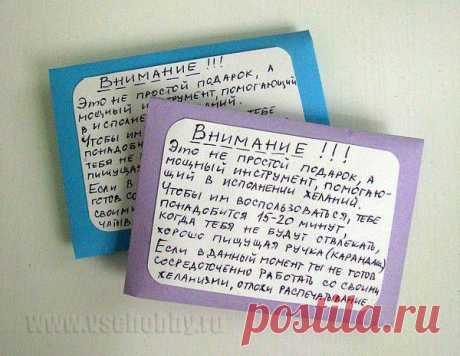 ВНИМАНИЕ !!!
ЭТО НЕ ПРОСТОЙ ПОДАРОК, А
МОЩНЫЙ ИНСТРУМЕНТ, ПОМОГАЮЩИЙ
В ИСПОЛНЕ ЛАНИЙ.
ЧТОБЫ ИМ ТЕБЕ
ПОНАДОБ
ТЕБЯ НЕ
ПИШУЩАЯ
ЕСЛИ В
ГОТОВ СО
СВОИМ
ВНИМАНИЕ !!!
ЭТО НЕ ПРОСТОЙ ПОДАРОК, А
МОЩНЫЙ ИНСТРУМЕНТ, ПОМОГАЮ-
ЩИЙ В ИСПОЛНЕНИИ ЖЕЛАНИЙ.
ЧТОБЫ ИМ ВОСПОЛЬЗОВАТЬСЯ, ТЕБЕ
ПОНАДОБИТСЯ 15-20 МИНУТ,
КОГДА ТЕБЯ НЕ БУДУТ ОТВЛЕКАТЬ,
ХОРОШО ПИШУЩАЯ РУЧКА (КАРАНДАШ)
ЕСЛИ В ДАННЫЙ МОМЕНТ ТЫ НЕ ГОТОВ
СОСРЕДОТОЧЕННО РАБОТАТЬ СО СВОИМИ
ЖЕЛАНИЯМИ, ОТЛОЖИ РАСПЕЧАТЫВАНИЕ
www.vsehobby.ru
postila.ru